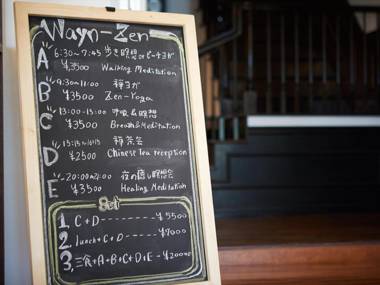 Wayn-Zen
A 6:30~7:45 歩き瞑想orビーチヨガ
¥3,500 Walking Meditation
B 9:30~11:00 禅ヨガ
¥3500 Zen-Yoga
C 13:00-15:00 呼吸&瞑想
¥3500 Breath&Meditation
D 禅茶会
¥2500 Chinese tea reception
E 20:00~21:00 夜の癒し瞑想会
¥3500 Healing Meditation
Set
1, C+D --------¥5500
2, lunch+C+D ------¥7000
3, 三食+A+B+C+D+E -¥20000